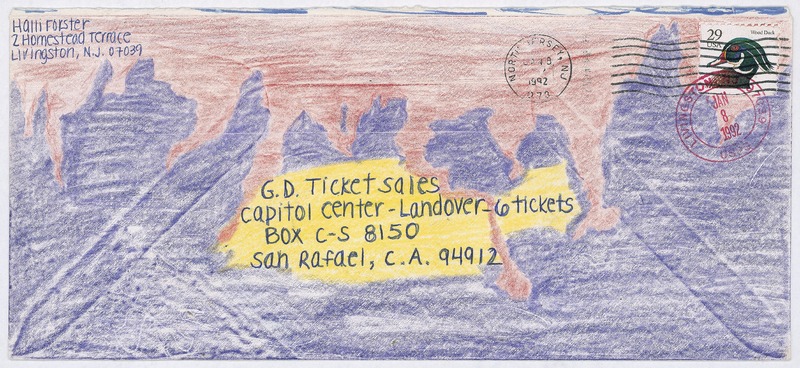 Halli Forster
2 Homestead Terrace
Livingston, N.J. 07039
NORTH JERSEY, NJ
1992
073
29
USA
Wood Duck
LIVINGSTON
JAN
8
1992
USPS
G.D. Ticket sales
Capitol Center - Landover - 6 tickets
BOX C-S 8150
San Rafael, C.A. 94912